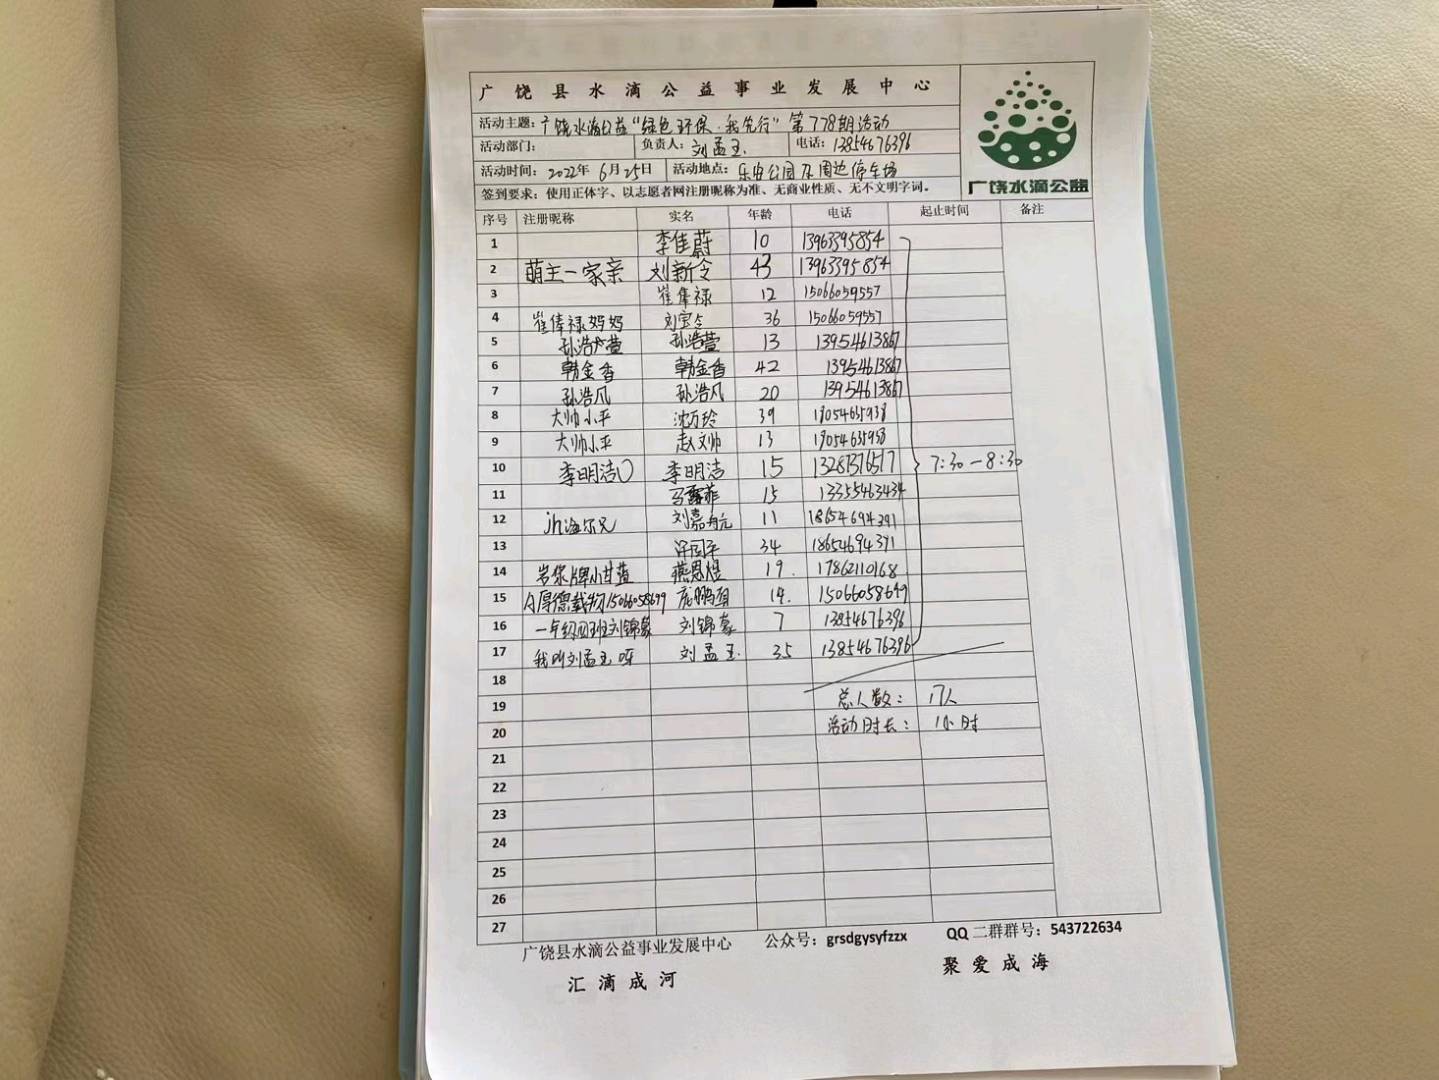 广饶县水滴公益事业发展中心
活动主题：广饶水滴公益“绿色环保·我先行”第778期活动
活动部门： 负责人：刘孟玉. 电话：13854676396
活动时间：2022年6月25日 活动地点：乐安公园及周边停车场
广饶水滴公益
签到要求：使用正体字、以志愿者网注册昵称为准、无商业性质、无不文明字词。
序号 注册昵称 实名 年龄 电话 起止时间 备注
1 李佳蔚 10 13963395854
2 萌主一家亲 刘新令 43 13963395854
3 崔俸禄 12 15066059557
4 崔俸禄妈妈 刘宝令 36 15066059557
5 孙浩萱 孙浩萱 13 13954613867
6 韩金香 韩金香 42 13954613867
7 孙浩凡 孙浩凡 20 13954613867
8 大帅小平 沈万玲 39 19054635938
9 大帅小平 赵文帅 13 19054635938
10 李明洁 李明洁 15 13287376517 7:30—8:30
11 马露菲 15 13355463434
12 jh海尔兄 刘嘉航 11 18654694391
13 许国平 34 18654694391
14 小甘蓝 燕恩煜 19. 17862110168
15 A厚德载物15066058649 庞鹏 14. 15066058649
16 一年级四班刘锦豪 刘锦豪 7 13854676396
17 我叫刘孟玉呀 刘孟玉. 35 13854676396
18
19 总人数： 17人
20 活动时长： 1小时
21
22
23
24
25
26
27
广饶县水滴公益事业发展中心 公众号：grsdgysyfzzx QQ二群群号：543722634
汇滴成河 聚爱成海